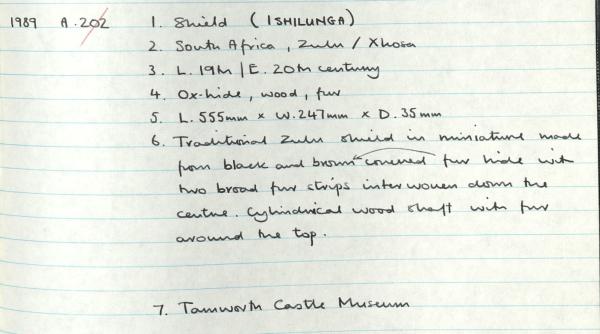 1989 A.202 1. Shield (ISHILUNGA)
2. South Africa, Zulu / Xhosa
3. L. 19th / E. 20th century
4. Ox-hide, wood, fur
5. L. 555mm x W. 247mm x D. 35mm
6. Traditional Zulu shield in miniature made
from black and brown covered fur hide with
two broad fur strips interwoven down the
centre. Cylindrical wood shaft with fur
around the top.
7. Tamworth Castle Museum